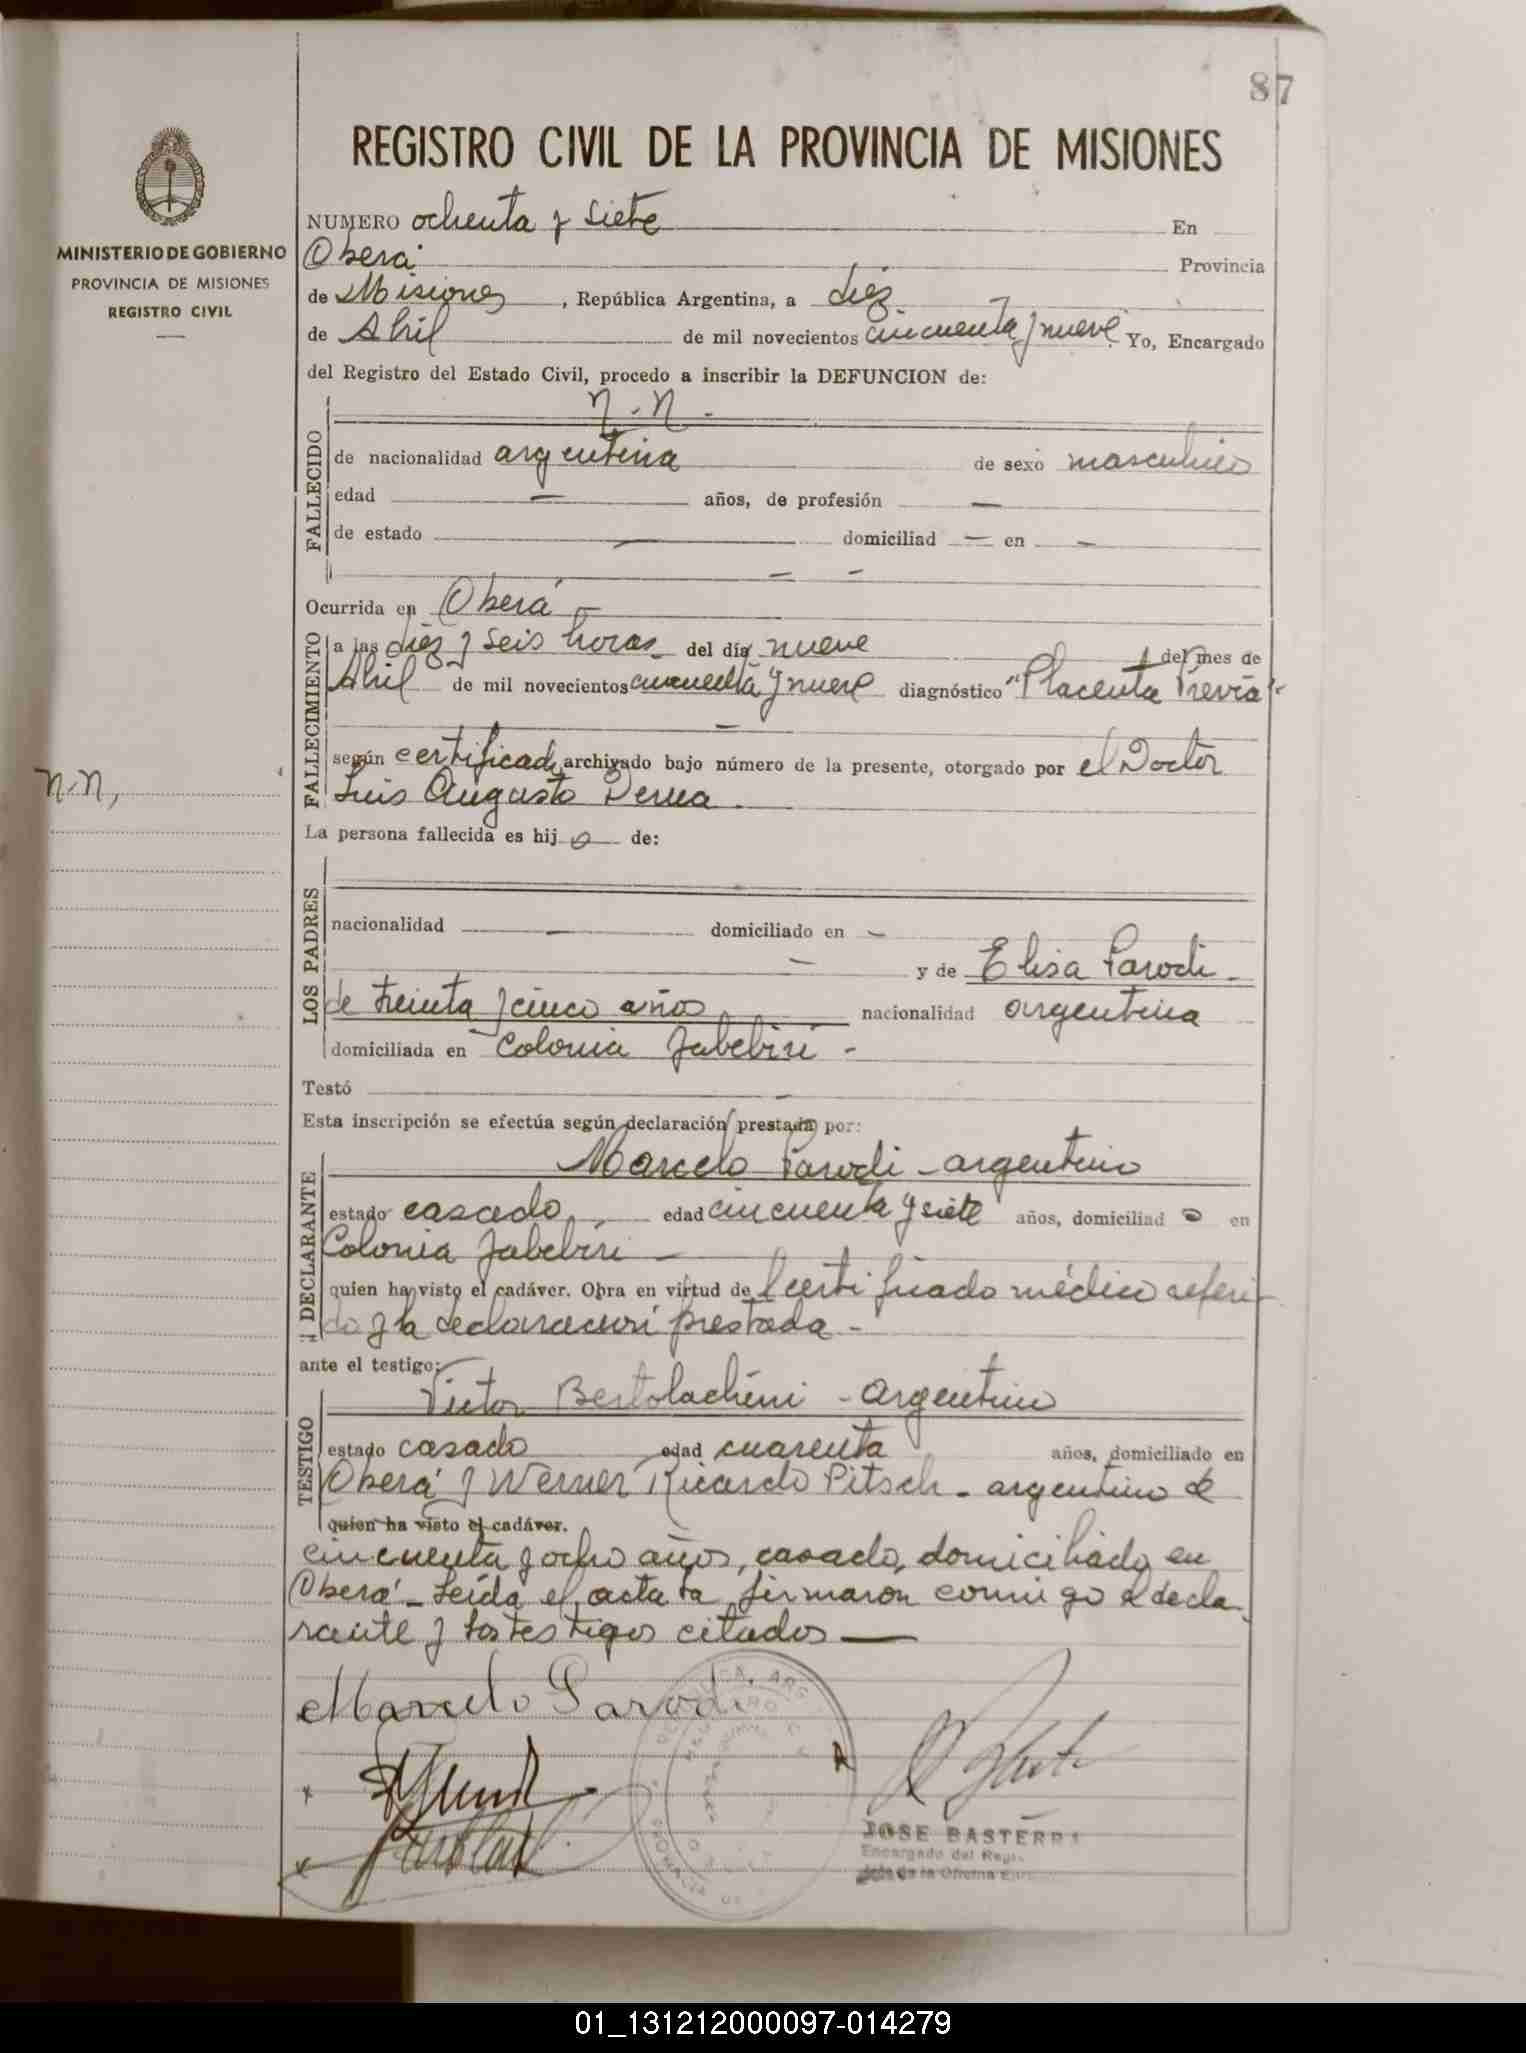 87
REGISTRO CIVIL DE LA PROVINCIA DE MISIONES
MINISTERIO DE GOBIERNO
PROVINCIA DE MISIONES
REGISTRO CIVIL
NUMERO ochenta y siete En
Oberá Provincia
de Misiones, República Argentina, a diez
de Abril de mil novecientos cincuenta y nueve Yo, Encargado
del Registro del Estado Civil, procedo a inscribir la DEFUNCION de:
N.N.-
FALLECIDO
de nacionalidad argentina de sexo masculino
edad — años, de profesión —
de estado — domiciliad — en —
— —
Ocurrida en Oberá —
FALLECIMIENTO
a las diez y seis horas del día nueve del mes de
Abril de mil novecientos cincuenta y nueve diagnóstico "Placenta Previa"-
—
según certificado archivado bajo número de la presente, otorgado por el Doctor
Luis Augusto
N.N,
La persona fallecida es hij o de:
LOS PADRES
nacionalidad — domiciliado en —
— y de Elisa Parodi -
de treinta y cinco años nacionalidad argentina
domiciliada en Colonia Jabebiri -
Testó -
Esta inscripción se efectúa según declaración prestada por:
DECLARANTE
Marcelo Parodi - argentino
estado casado edad cincuenta y siete años, domiciliad o en
Colonia Jabebiri —
quien ha visto el cadáver. Obra en virtud del certificado médico referi-
do y la declaración prestada -
ante el testigo:
TESTIGO
Victor Bertolachini - argentino
estado casado edad cuarenta años, domiciliado en
Oberá y Werner Ricardo Pitsch - argentino de
quien ha visto el cadáver.
cincuenta y ocho años, casado, domiciliado en
Oberá - Leída el acta la firmaron conmigo el decla-
rante y los testigos citados —
Marcelo Parodi
JOSE BASTERRA
Encargado del Regis
Jefe de la Oficina
01_131212000097-014279